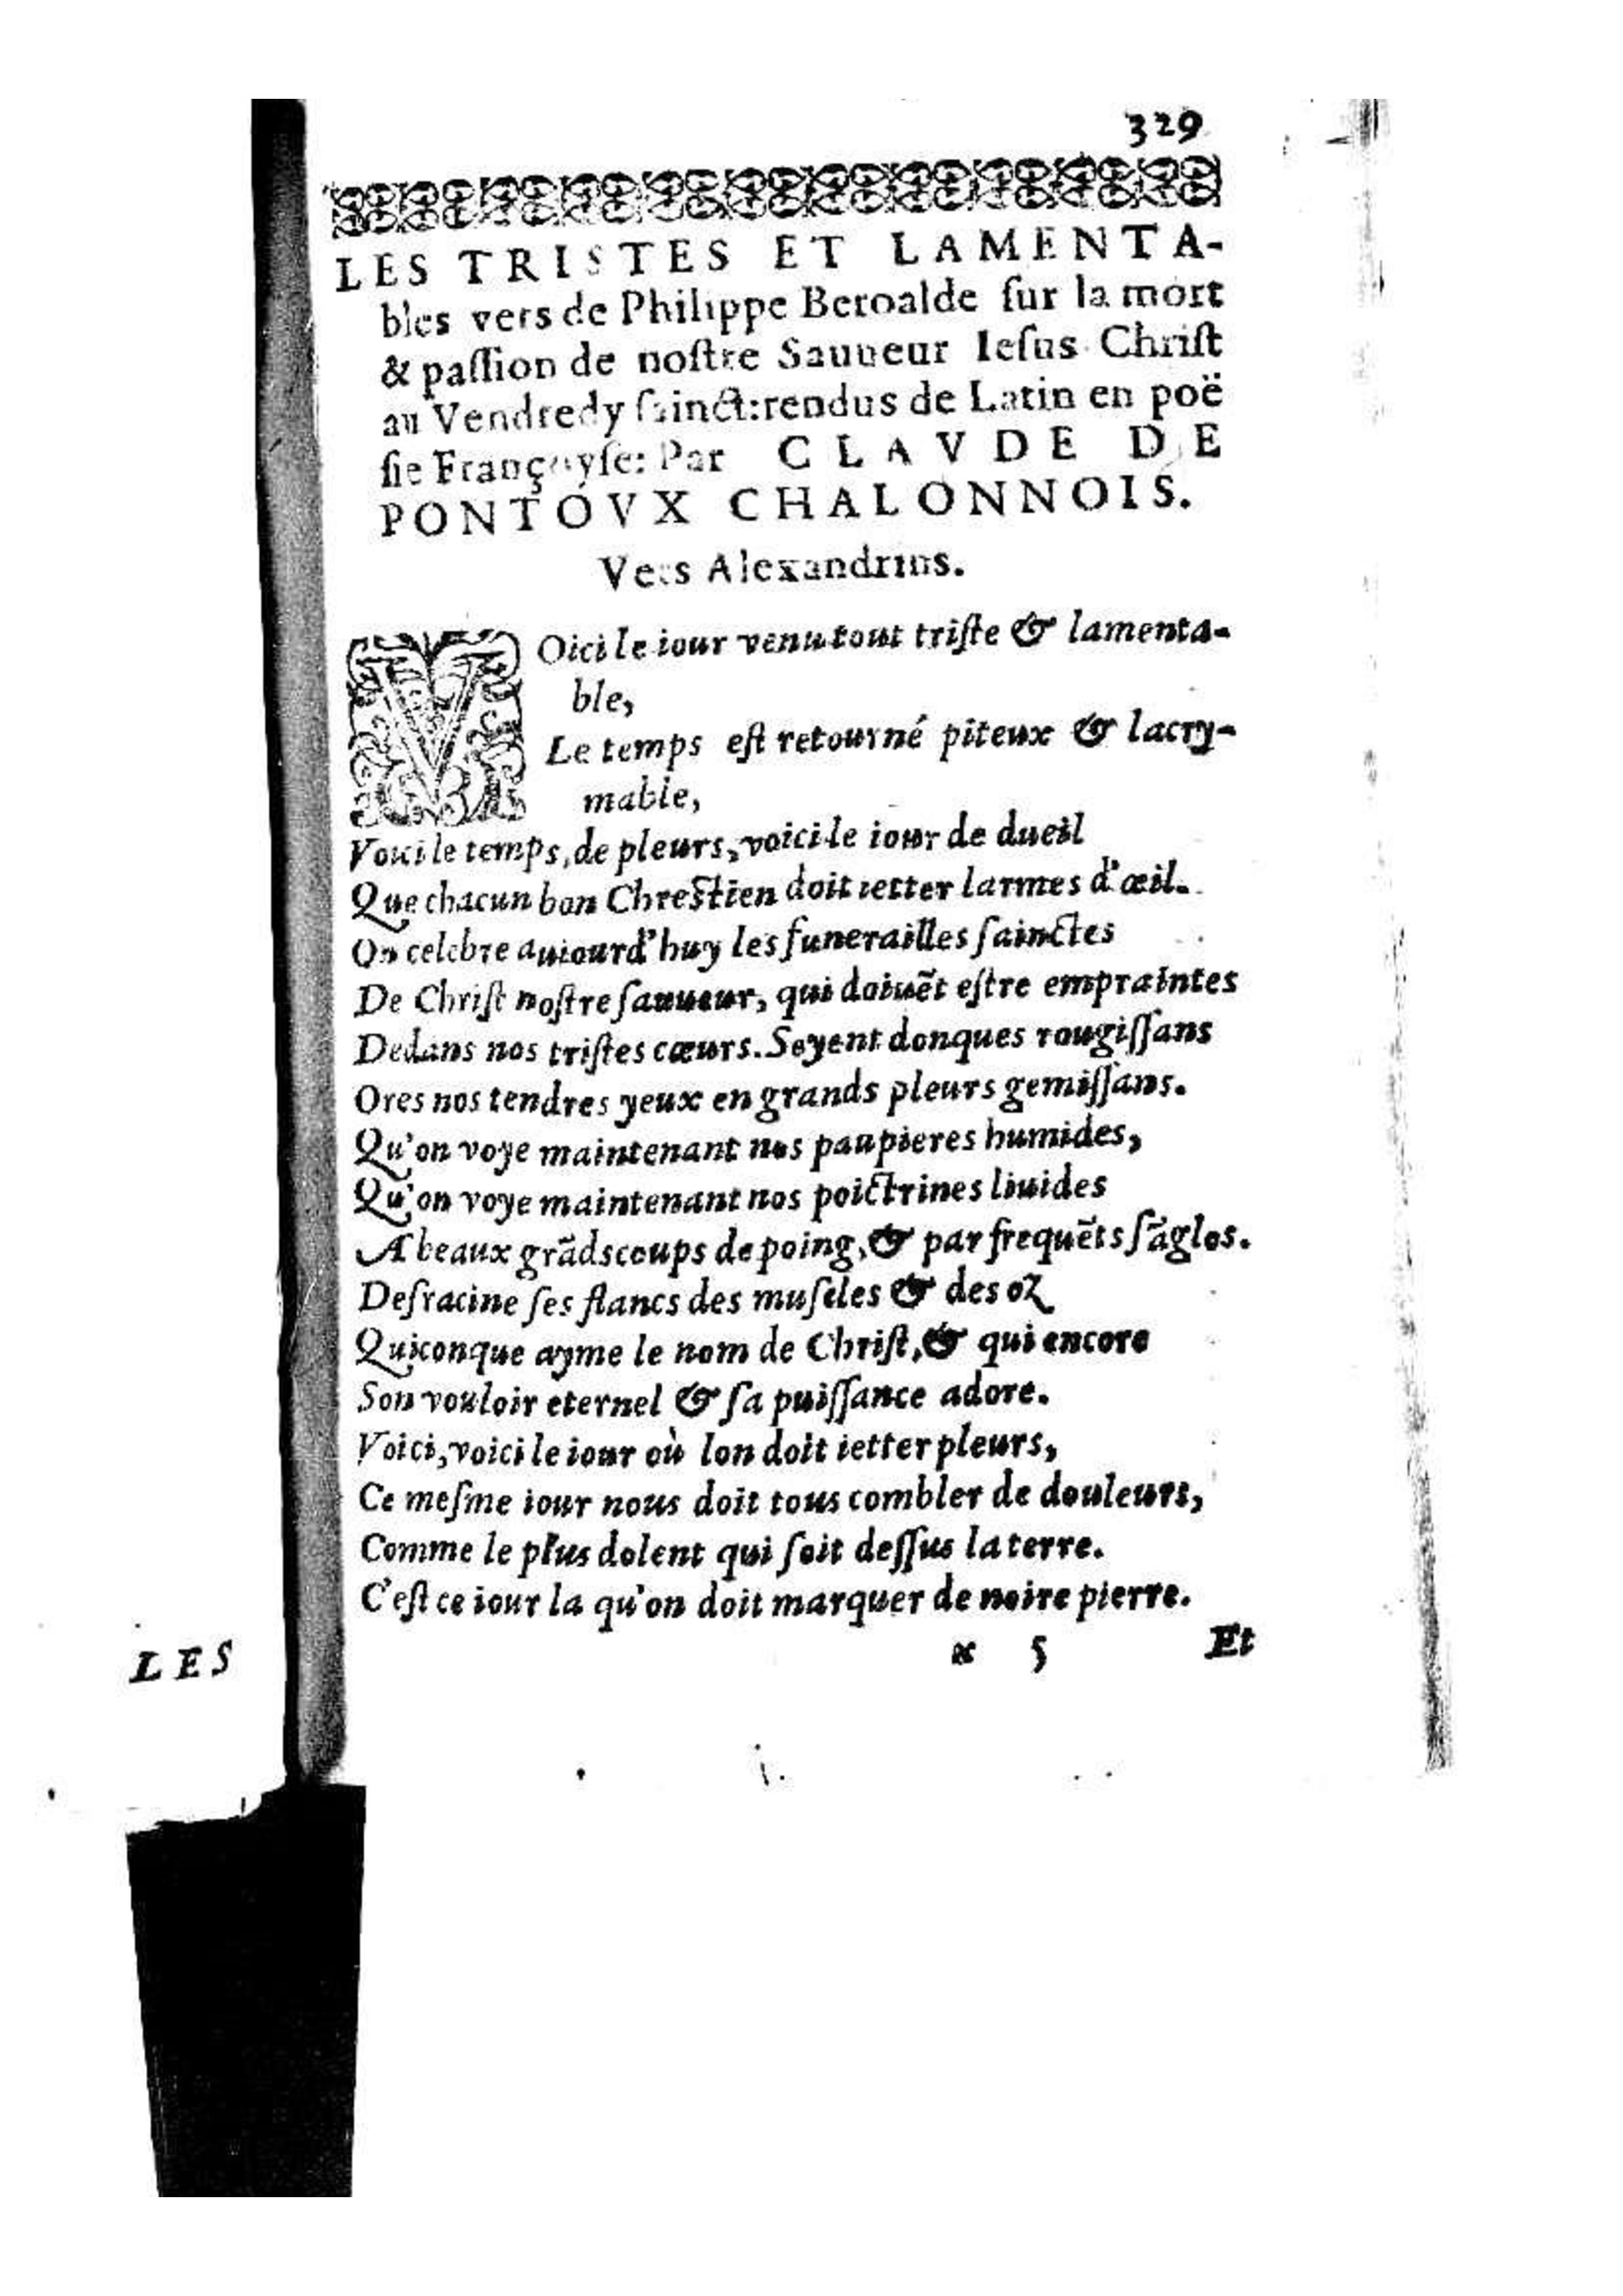 329
LES TRISTES ET LAMENTA-
bles vers de Philippe Beroalde ſur la mort
& paſſion de noſtre Sauueur Ieſus Chriſt
au Vendredy ſainct:rendus de Latin en poë
ſie Françoyſe: Par CLAVDE DE
PONTOVX CHALONNOIS.
Vers Alexandrins.
VOici le iour venu tout triſte & lamenta-
ble,
Le temps eſt retourné piteux & lacry-
mable,
Voici le temps, de pleurs, voici le iour de dueil
Que chacun bon Chreſtien doit ietter larmes d'œil.
On celebre auiourd'huy les funerailles ſainctes
De Chriſt noſtre ſauueur, qui doiuẽt eſtre empraintes
Dedans nos triſtes cœurs. Soyent donques rougiſſans
Ores nos tendres yeux en grands pleurs gemiſſans.
Qu'on voye maintenant nos paupieres humides,
Qu'on voye maintenant nos poictrines liuides
A beaux grãds coups de poing, & par frequẽts ſãglos.
Deſracine ſes flancs des muſcles & des oz
Quiconque ayme le nom de Chriſt, & qui encore
Son vouloir eternel & ſa puiſſance adore.
Voici, voici le iour où lon doit ietter pleurs,
Ce meſme iour nous doit tous combler de douleurs,
Comme le plus dolent qui ſoit deſſus la terre.
C'eſt ce iour la qu'on doit marquer de noire pierre.
5 Et
LES